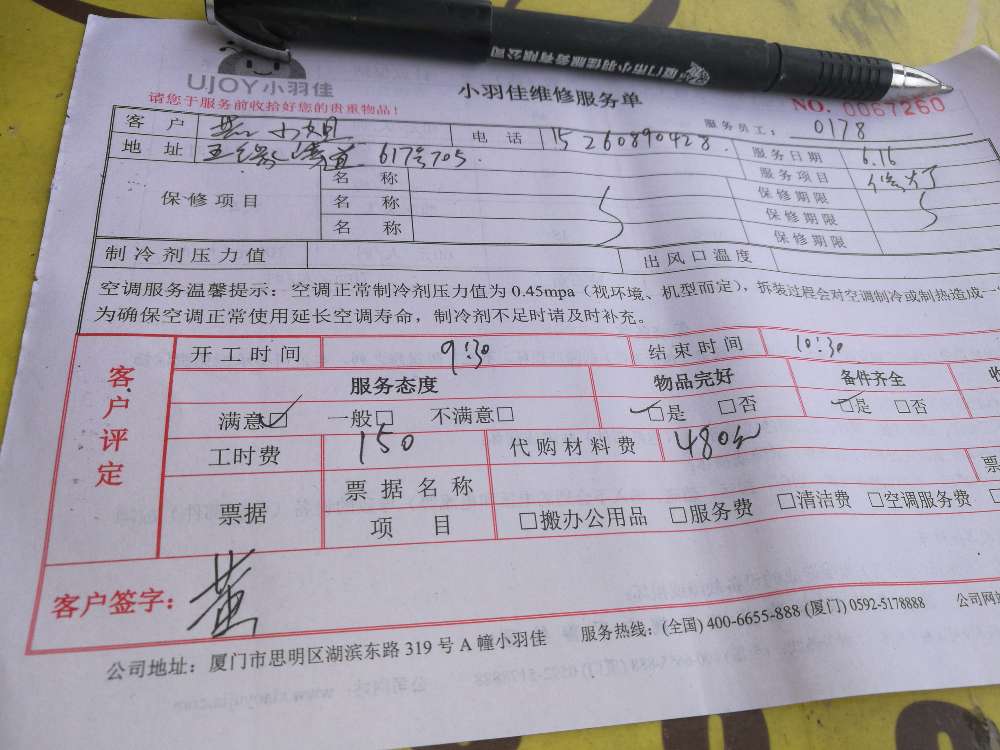 厦门市小羽佳服务有限公司
UJOY小羽佳
小羽佳维修服务单
请您于服务前收拾好您的贵重物品!
NO. 0067260
服务员工: 0178
客户 黄小姐 电话 15260890428
地址 617号705 服务日期 6.16
服务项目 修灯
保修项目 名称 保修期限
名称 保修期限
名称 保修期限
制冷剂压力值 出风口温度
空调服务温馨提示:空调正常制冷剂压力值为0.45mpa(视环境、机型而定),拆装过程会对空调制冷或制热造成一
为确保空调正常使用延长空调寿命,制冷剂不足时请及时补充。
客户评定
开工时间 9:30 结束时间 10:30
服务态度 物品完好 备件齐全 收
满意☑ 一般□ 不满意□ ☑是 □否 ☑是 □否
工时费 150 代购材料费 480
票据 票据名称 票
项目 □搬办公用品 □服务费 □清洁费 □空调服务费 □
客户签字: 黄
公司地址:厦门市思明区湖滨东路319号A幢小羽佳 服务热线:(全国) 400-6655-888 (厦门) 0592-5178888 公司网站